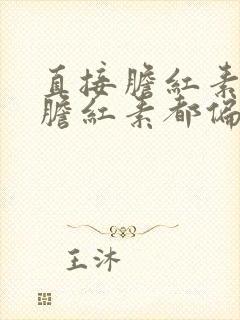 直接膽紅素
膽紅素都偏
王沐